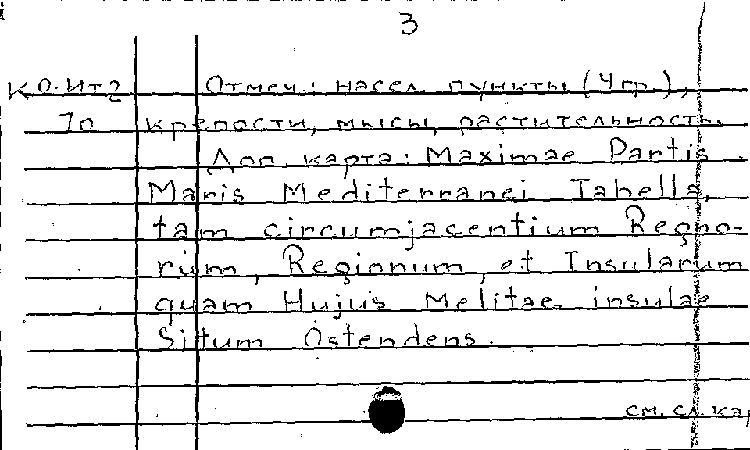 3
КО.Ит2 Отмеч.: насел. пункты (4 гр.),
70 крепости, мысы, растительность.
Доп. карта: Maximae Partis
Maris Mediterranei Tabella,
tam circumjacentium Regno-
rum, Regionum, et Insularum
quam Hujus Melitae insulae
Situm Ostendens.
см. сл. кар